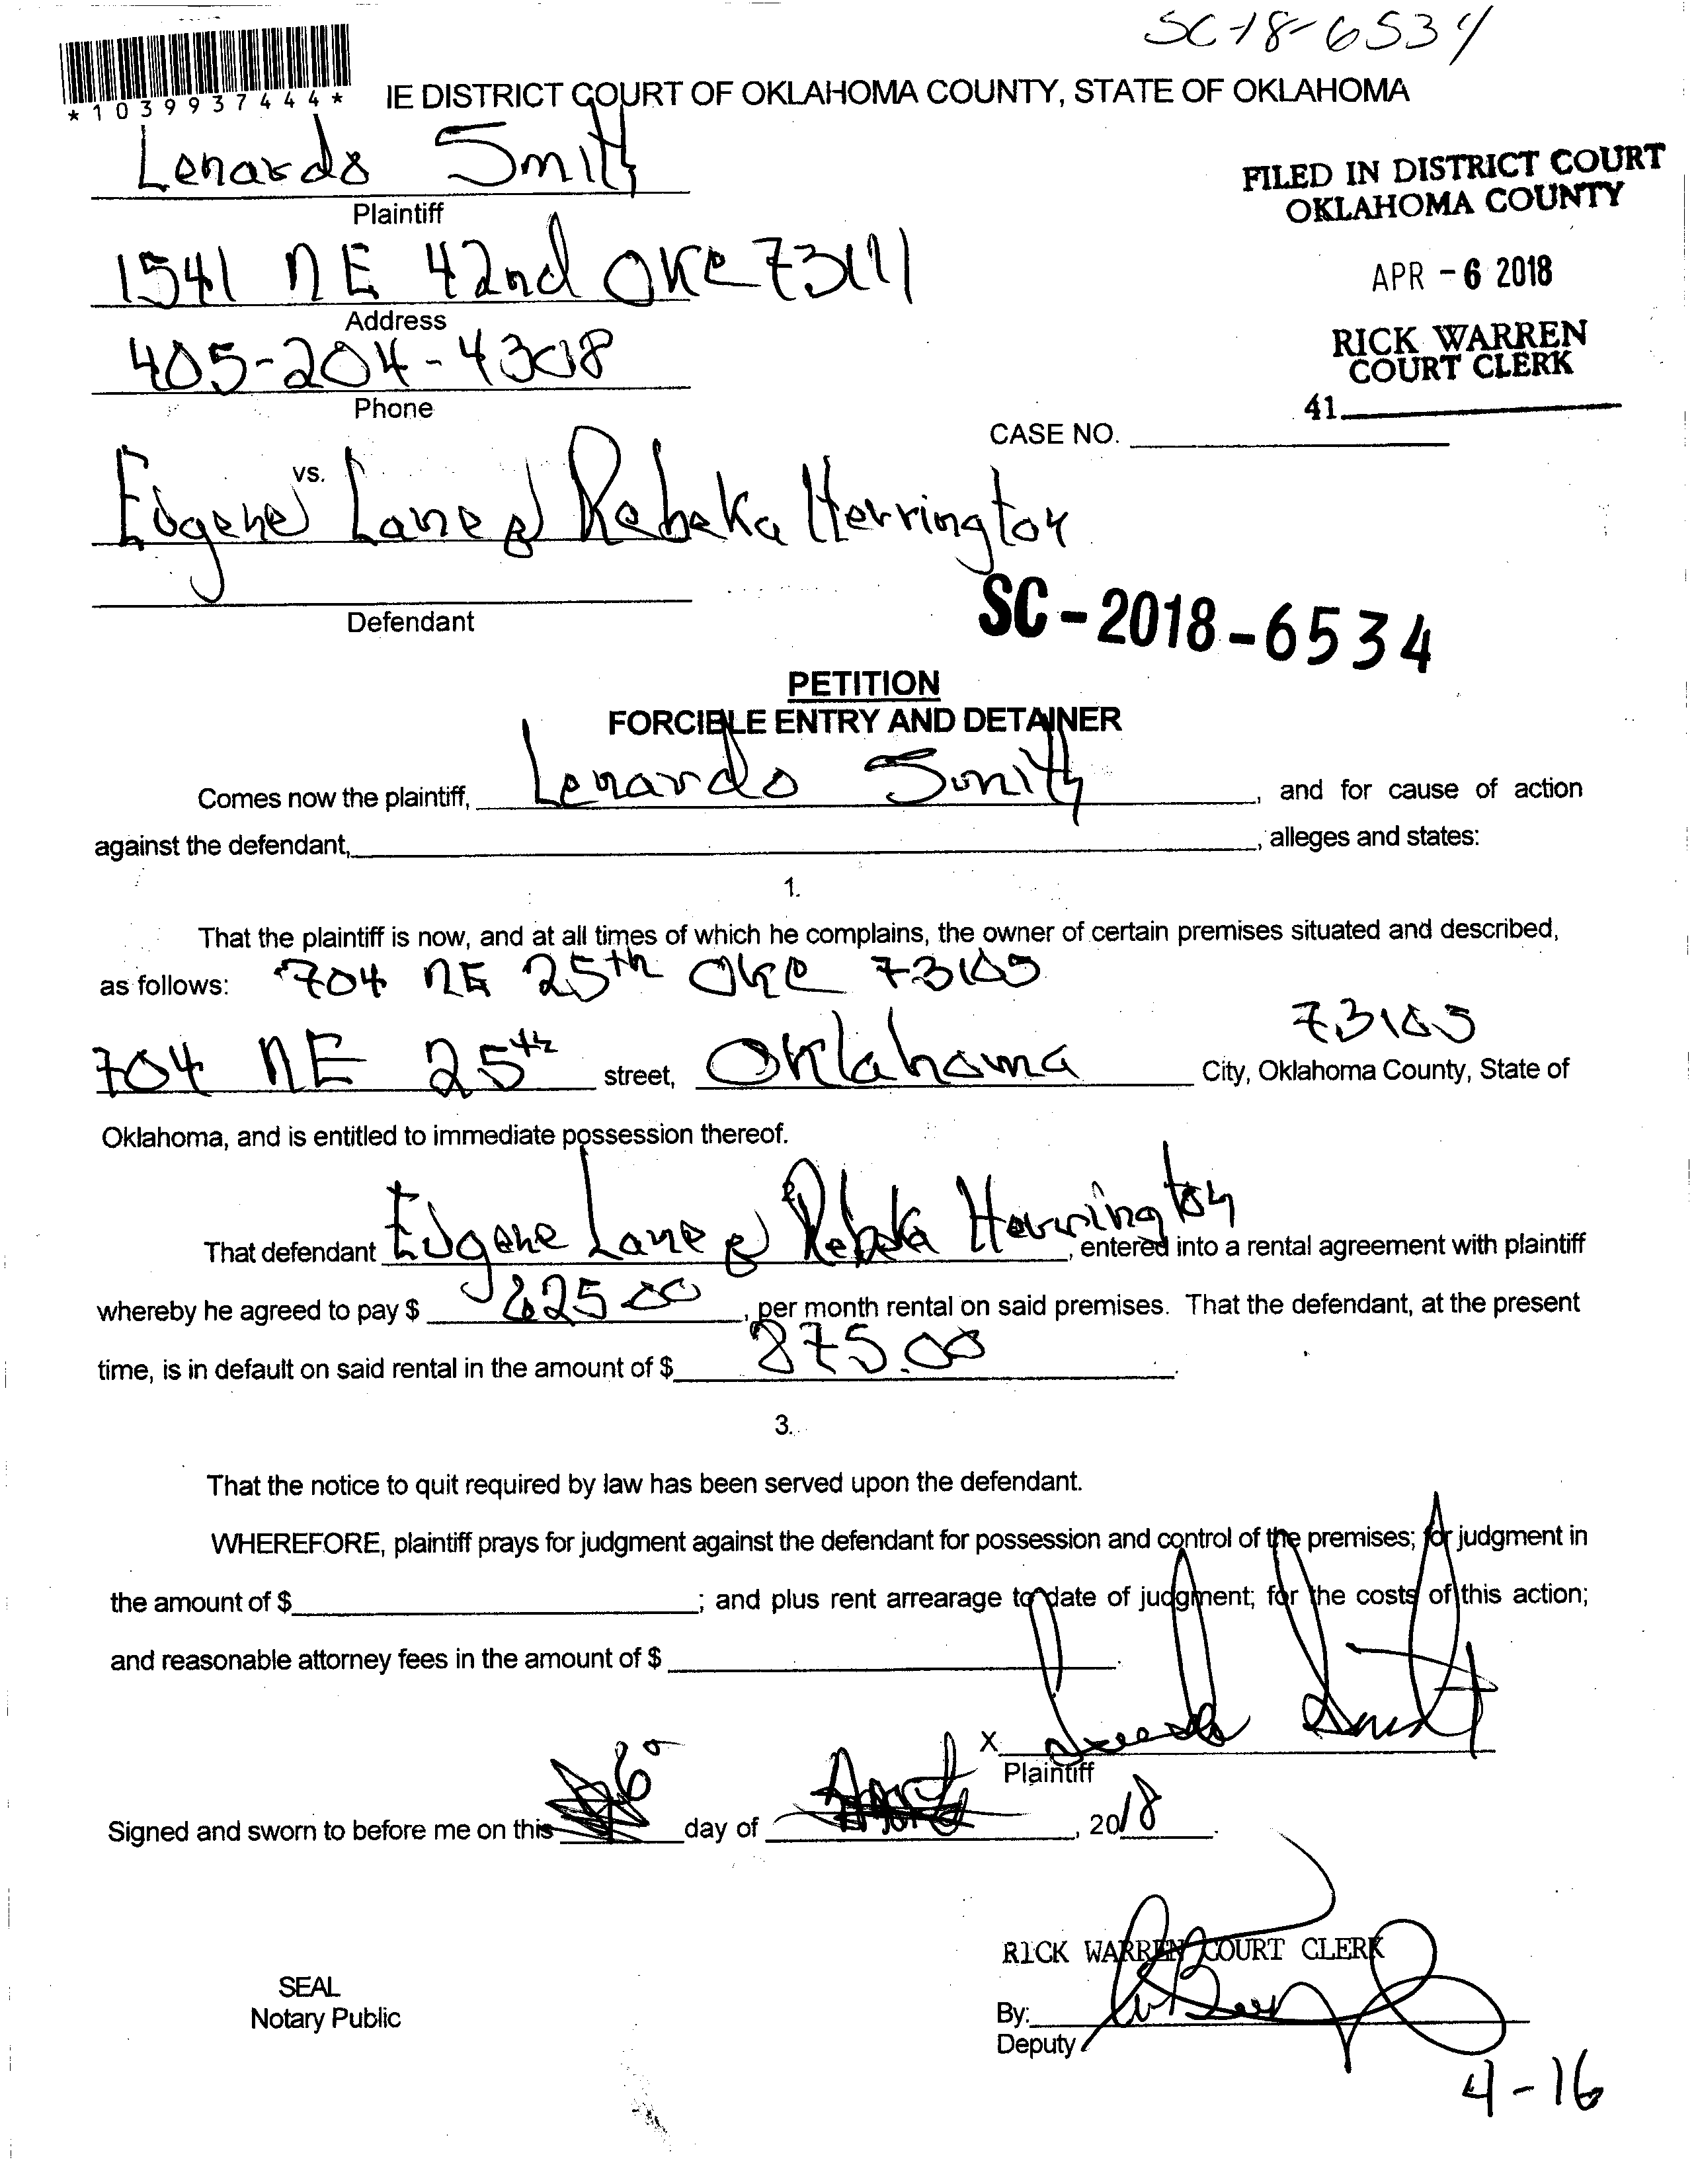 SC-18-6534
*1039937444*
IE DISTRICT COURT OF OKLAHOMA COUNTY, STATE OF OKLAHOMA
Lenardo Smith
Plaintiff
FILED IN DISTRICT COURT
OKLAHOMA COUNTY
1541 NE 42nd OKC 73111
Address
APR -6 2018
405-204-4308
Phone
RICK WARREN
COURT CLERK
41
CASE NO.
vs.
Eugene Lane & Rebeka Herrington
Defendant
SC-2018-6534
PETITION
FORCIBLE ENTRY AND DETAINER
Comes now the plaintiff, Lenardo Smith, and for cause of action
against the defendant, , alleges and states:
1.
That the plaintiff is now, and at all times of which he complains, the owner of certain premises situated and described,
as follows: 704 NE 25th OKC 73105
73105
704 NE 25th street, Oklahoma City, Oklahoma County, State of
Oklahoma, and is entitled to immediate possession thereof.
That defendant Eugene Lane & Rebeka Herrington, entered into a rental agreement with plaintiff
whereby he agreed to pay $ 625.00, per month rental on said premises. That the defendant, at the present
time, is in default on said rental in the amount of $ 875.00.
3.
That the notice to quit required by law has been served upon the defendant.
WHEREFORE, plaintiff prays for judgment against the defendant for possession and control of the premises; for judgment in
the amount of $ ; and plus rent arrearage to date of judgment; for the costs of this action;
and reasonable attorney fees in the amount of $ .
X
Plaintiff
Signed and sworn to before me on this 6 day of April, 2018.
RICK WARREN COURT CLERK
SEAL
Notary Public
By:
Deputy
4-16